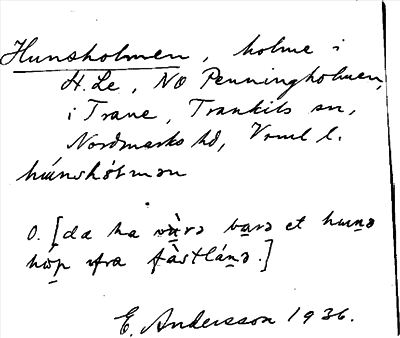 Hunsholmen, holme i
H. Le, NO Penningholmen,
i Trane, Trankils sn,
Nordmarks hd, Vrml l.
húnshól̀mən
O. [da ha vàrə barə et hunə
hòp ifra fàstlánə.]
E. Andersson 1936.